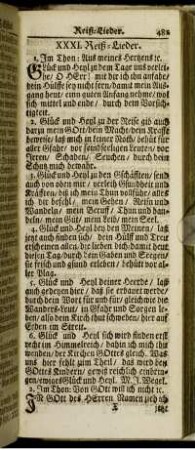 Reiß-Lieder. 481
XXXI. Reiß-Lieder.
1. Im Thon: Aus meines Hertzens ic.
Glück und Heyl zu dem Tage uns verleihe,
O HErr! mit dir ich ihn anfahe,
dein Hülffe sey nicht fern, damit mein Ausgang
heut, dem ein Anfang nehme, wol
sich mittel und ende, durch dein Vorsichtigkeit.
2. Glück und Heyl zu der Reise gib auch
darzu mein Gott, dein Macht, dein Krafft
beweise, laß mich in keiner Noth, beschütz für
aller Gfahr, vor feindseeligen Leuten, vor
Irren, Schaden, Seuchen, durch dein
Schutz mich bewahr.
3. Glück und Heyl zu den Gschäfften, send
auch von oben mir, verleih Gsundheit und
Kräfften, biß ich mein Thun vollführ, alles
ich dir befehl, mein Gehen, Reisn und
Wandeln, mein Beruff, Thun und handeln,
mein Gut, mein Leib, mein Seel.
4. Glück und Heyl bey den Meinen, laß
jetzt auch finden sich, dein Hülff und Treu
erscheinen allen, die lieben dich damit heut
diesen Tag, durch dein Gaben und Seegen,
sie frisch und gsund erleben, behüt vor aller
Plag.
5. Glück und Heyl deiner Heerde, laß
auch gedeyen hier, daß sie erbaut werde,
durch dein Wort für und für, gleichwie die
Wanders-leut, in Gfahr und Sorgen leben,
also dem Kirch thut schweben, hier auf
Erden im Streit.
6. Glück und Heyl sich wird finden erst
recht im Himmelreich, dahin ich mich thu
wenden, der Kirchen Gottes gleich. Was
uns hier fehlt zum Theil, das wird bey
GOttes Kindern, gewiß reichlich einbringen,
ewiges Glück und Heyl. M. J. Wegel.
2. Im Thon: Von GOtt will ich nicht ic.
IN GOtt des HErren Namen zieh ich
X jetzt